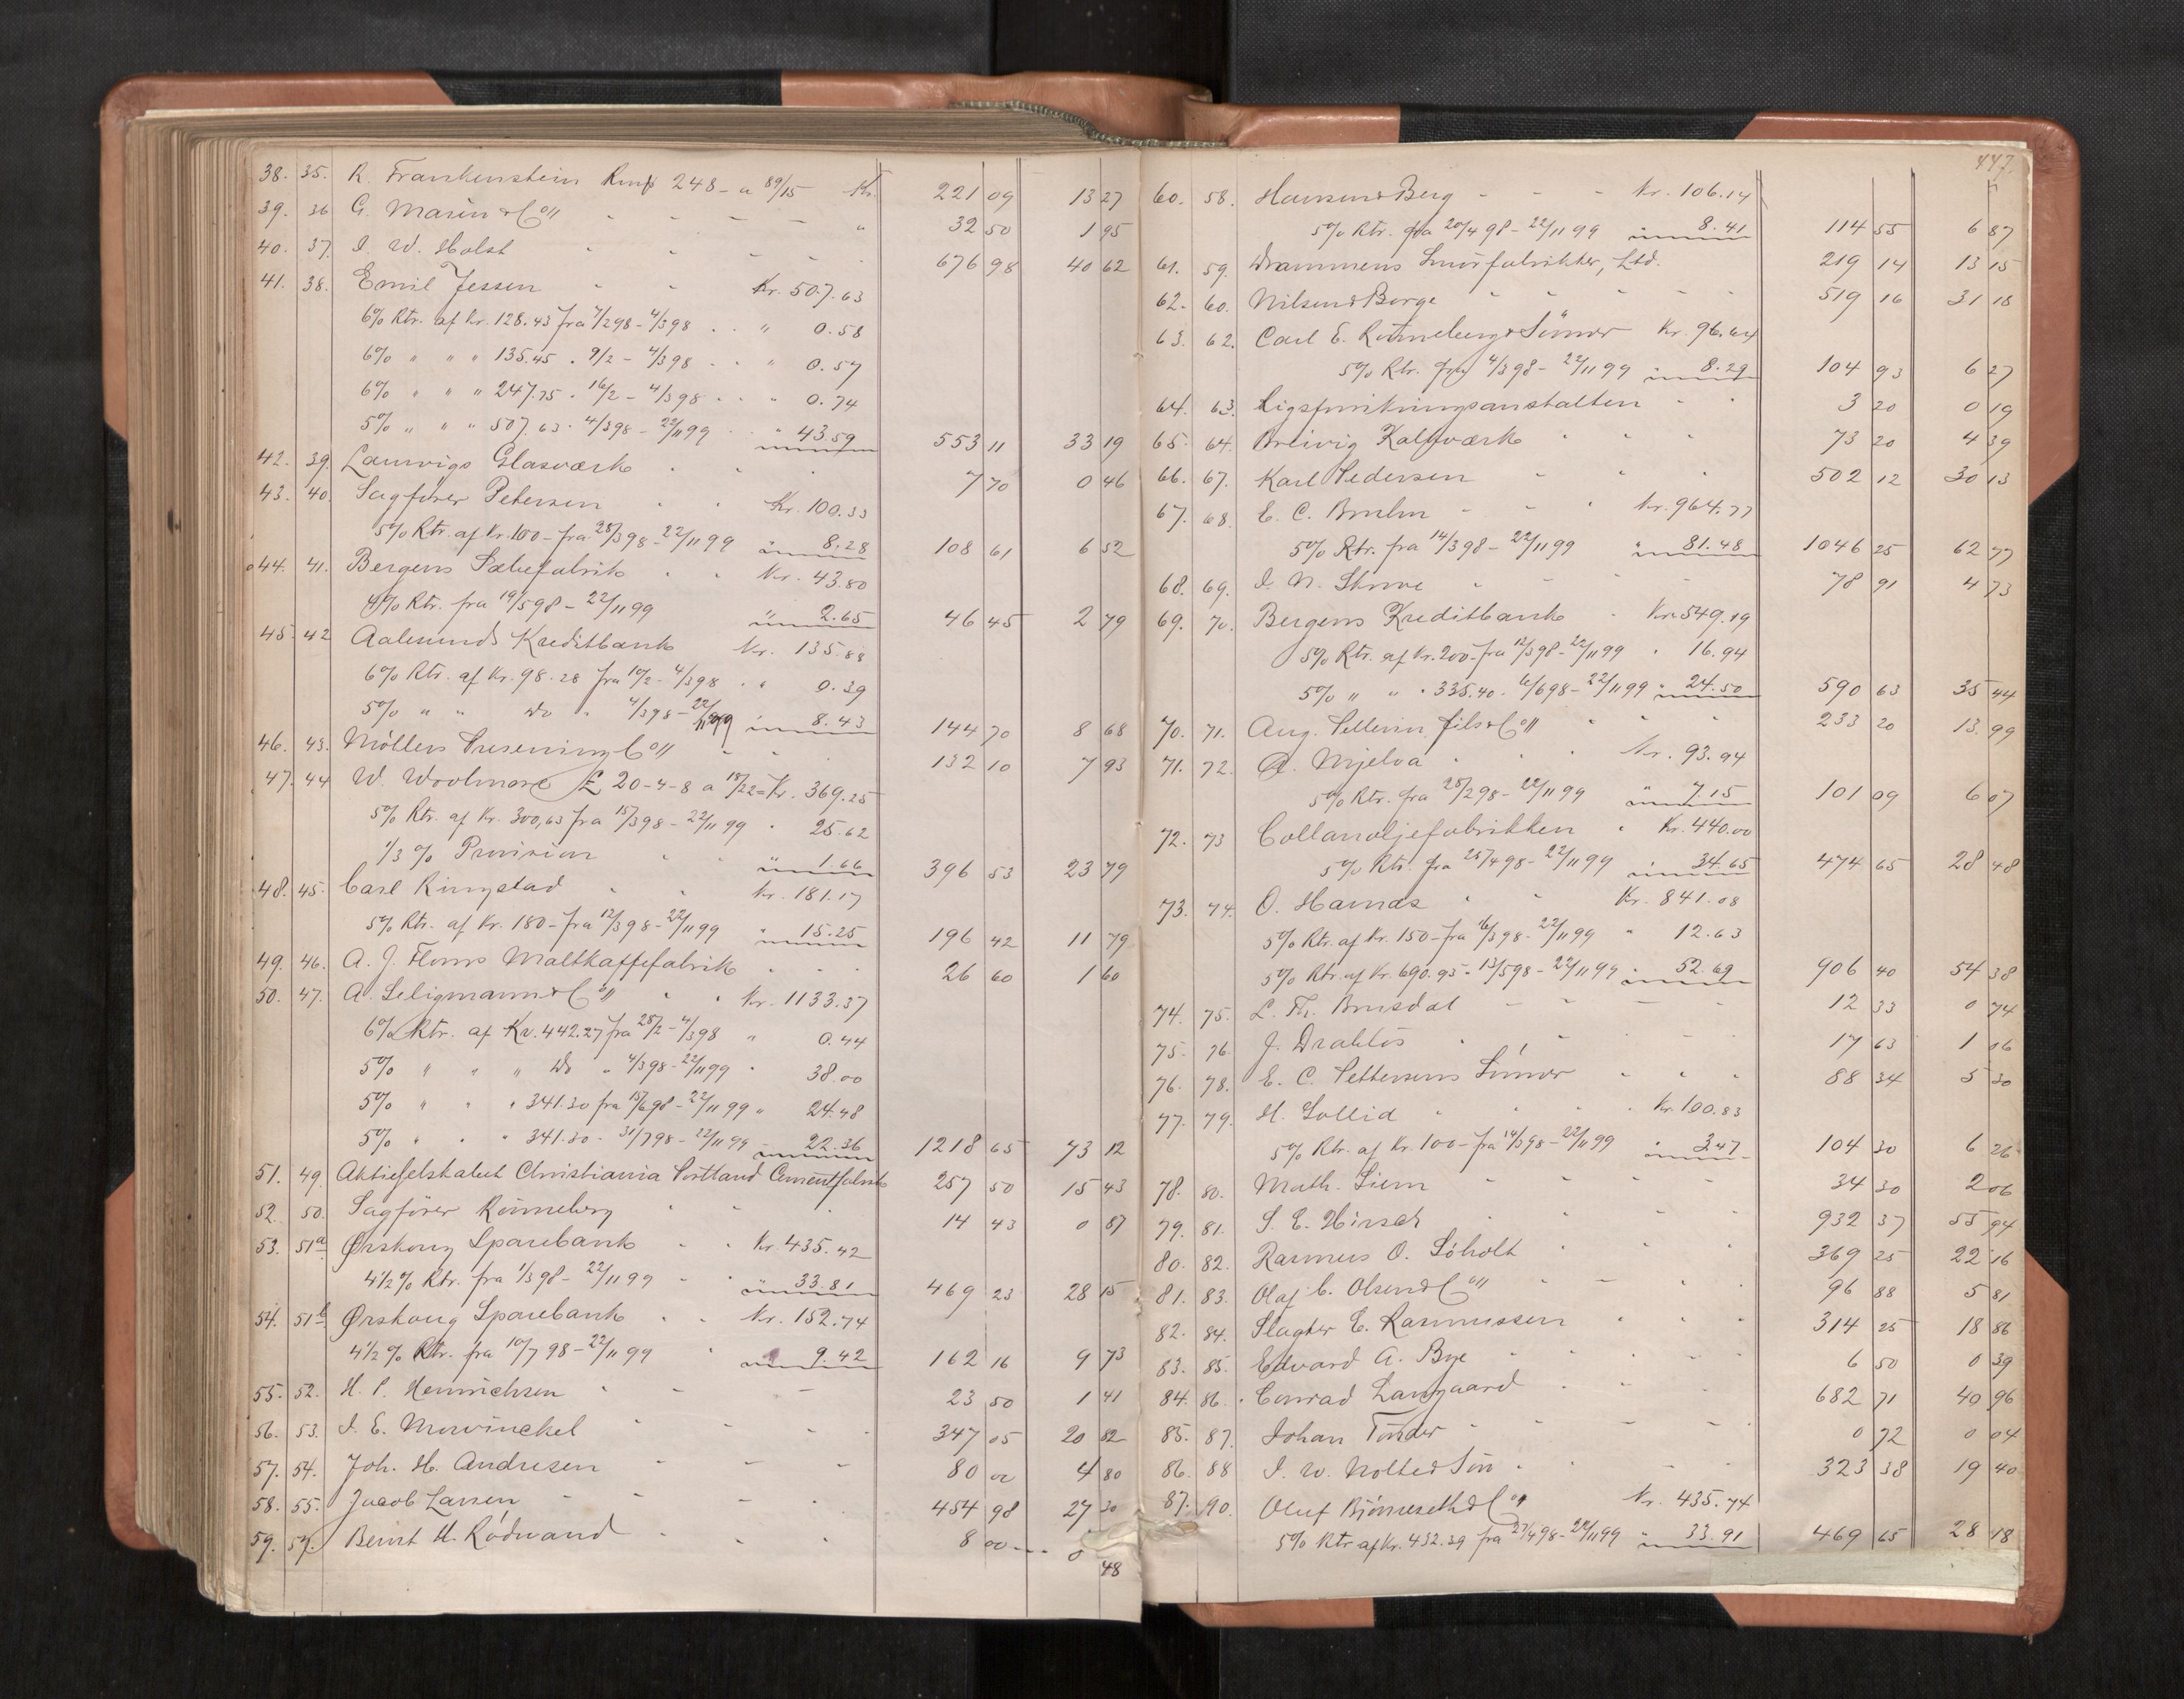 38. 35. R. Frankenstein Rmk 248 – a 89/15 Kr. 221 09 13 27
39. 36 G. Masin & Co " 32 50 1 95
40. 37. I. W. Holst 676 98 40 62
41. 38. Emil Jessen Kr. 507.63
6% Rtr. af Kr. 128.43 fra 4/2 98 – 4/3 98 " 0.58
6% " " " 135.45 " 9/2 – 4/3 98 " 0.57
6% " " " 247.75 " 16/2 – 4/3 98 " 0.74
5% " " " 507.63 " 4/3 98 – 22/11 99 " 43.59 553 11 33 19
42. 39. Laurvigs Glasværk 7 70 0 46
43. 40. Sagfører Petersen Kr. 100.33
5% Rtr. af Kr. 100 – fra 28/3 98 – 22/11 99 " 8.28 108 61 6 52
44. 41. Bergens Sæbefabrik Kr. 43.80
4% Rtr. fra 19/5 98 – 22/11 99 " 2.65 46 45 2 79
45. 42 Aalesunds Kreditbank Kr. 135.88
6% Rtr. af Kr. 98.28 fra 10/2 – 4/3 98 " 0.39
5% " " do " 4/3 98 – 22/11 99 " 8.43 144 70 8 68
46. 43. Møllers Presenning Co 132 10 7 93
47. 44 W. Woolmore £ 20-4-8 a 18/22 = Kr. 369.25
5% Rtr. af Kr. 300,63 fra 15/3 98 – 22/11 99 " 25.62
1/3 % Provision " 1.66 396 53 23 79
48. 45. Carl Ringstad Kr. 181.17
5% Rtr. af Kr. 180 – fra 12/3 98 – 22/11 99 " 15.25 196 42 11 79
49. 46. A. J. Floms Maltkaffefabrik 26 60 1 60
50. 47. A. Seligmann & Co Kr. 1133.37
6% Rtr. af Kr. 442.27 fra 25/2 – 4/3 98 " 0.44
5% " " " do " 4/3 98 – 22/11 99 " 38.00
5% " " " 341.30 fra 15/6 98 – 22/11 99 " 24.48
5% " " " 341.30 – 31/7 98 – 22/11 99 – 22.36 1218 65 73 12
51. 49. Aktieselskabet Christiania Portland Cementfabrik 257 50 15 43
52. 50. Sagfører Rönneberg 14 43 0 87
53. 51a Ørskoug Sparebank Kr. 435.42
4 1/2 % Rtr. fra 1/3 98 – 22/11 99 " 33.81 469 23 28 15
54. 51b Ørskoug Sparebank Kr. 152.74
4 1/2 % Rtr. fra 10/7 98 – 22/11 99 " 9.42 162 16 9 73
55. 52. H. P. Henrichsen 23 50 1 41
56. 53. I. E. Mowinckel 347 05 20 82
57. 54. Joh. H. Andresen 80 00 4 80
58. 55. Jacob Larsen 454 98 27 30
59. 57. Bernt H. Rødvand 8 00 0 48
447.
60. 58. Hansen & Berg Kr. 106.14
5% Rtr. fra 20/4 98 – 22/11 99 " 8.41 114 55 6 87
61. 59. Drammens Snørfabrikker, Ltd. 219 14 13 15
62. 60. Nilsen & Borge 519 16 31 18
63. 62. Carl E. Rönneberg & Sönner Kr. 96.64
5% Rtr. fra 4/3 98 – 22/11 99 " 8.29 104 93 6 27
64. 63. Ligsvøbningsanstalten 3 20 0 19
65. 64. Breivig Kalkværk 73 20 4 39
66. 67. Karl Pedersen 502 12 30 13
67. 68. E. C. Bruhn Kr. 964.77
5% Rtr. fra 14/3 98 – 22/11 99 " 81.48 1046 25 62 77
68. 69. I. N. Skrove 78 91 4 73
69. 70. Bergens Kreditbank Kr. 549.19
5% Rtr. af Kr. 200 – fra 12/3 98 – 22/11 99 " 16.94
5% " " " 335.40 – 6/6 98 – 22/11 99 " 24.50 590 63 35 44
70. 71. Aug. Pellerin fils & Co 233 20 13 99
71. 72. A. Mjelva Kr. 93.94
5% Rtr. fra 28/2 98 – 22/11 99 " 7.15 101 09 6 07
72. 73 Collanoljefabrikken " Kr. 440.00
5% Rtr. fra 25/4 98 – 22/11 99 " 34.65 474 65 28 48
73. 74. O. Hamas Kr. 841.08
5% Rtr. af Kr. 150 – fra 16/3 98 – 22/11 99 " 12.63
5% Rtr. af Kr. 690.95 – 13/5 98 – 22/11 99 " 52.69 906 40 54 38
74. 75. L. Th. Brusdal 12 33 0 74
75. 76. J. Drabløs 17 63 1 06
76. 78. E. C. Pettersens Sönner 88 34 5 30
77. 79. H. Sollid Kr. 100.83
5% Rtr. af Kr. 100 – fra 14/3 98 – 22/11 99 " 3.47 104 30 6 26
78. 80. Math. Liem 34 30 2 06
79. 81. S. E. Hirsch 932 37 55 94
80. 82. Rasmus O. Søholt 369 25 22 16
81. 83. Olaf C. Olsen & Co 96 88 5 81
82. 84. Slagter E. Rasmussen 314 25 18 86
83. 85. Edvard A. Bye 6 50 0 39
84. 86. Conrad Langaard 682 71 40 96
85. 87. Johan Tönder 0 72 0 04
86. 88 I. W. Nolte & Sön 323 38 19 40
87. 90. Oluf Bjørneseth & Co Kr. 435.74
5% Rtr af Kr. 432.39 fra 27/4 98 – 22/11 99 " 33.91 469 65 28 18